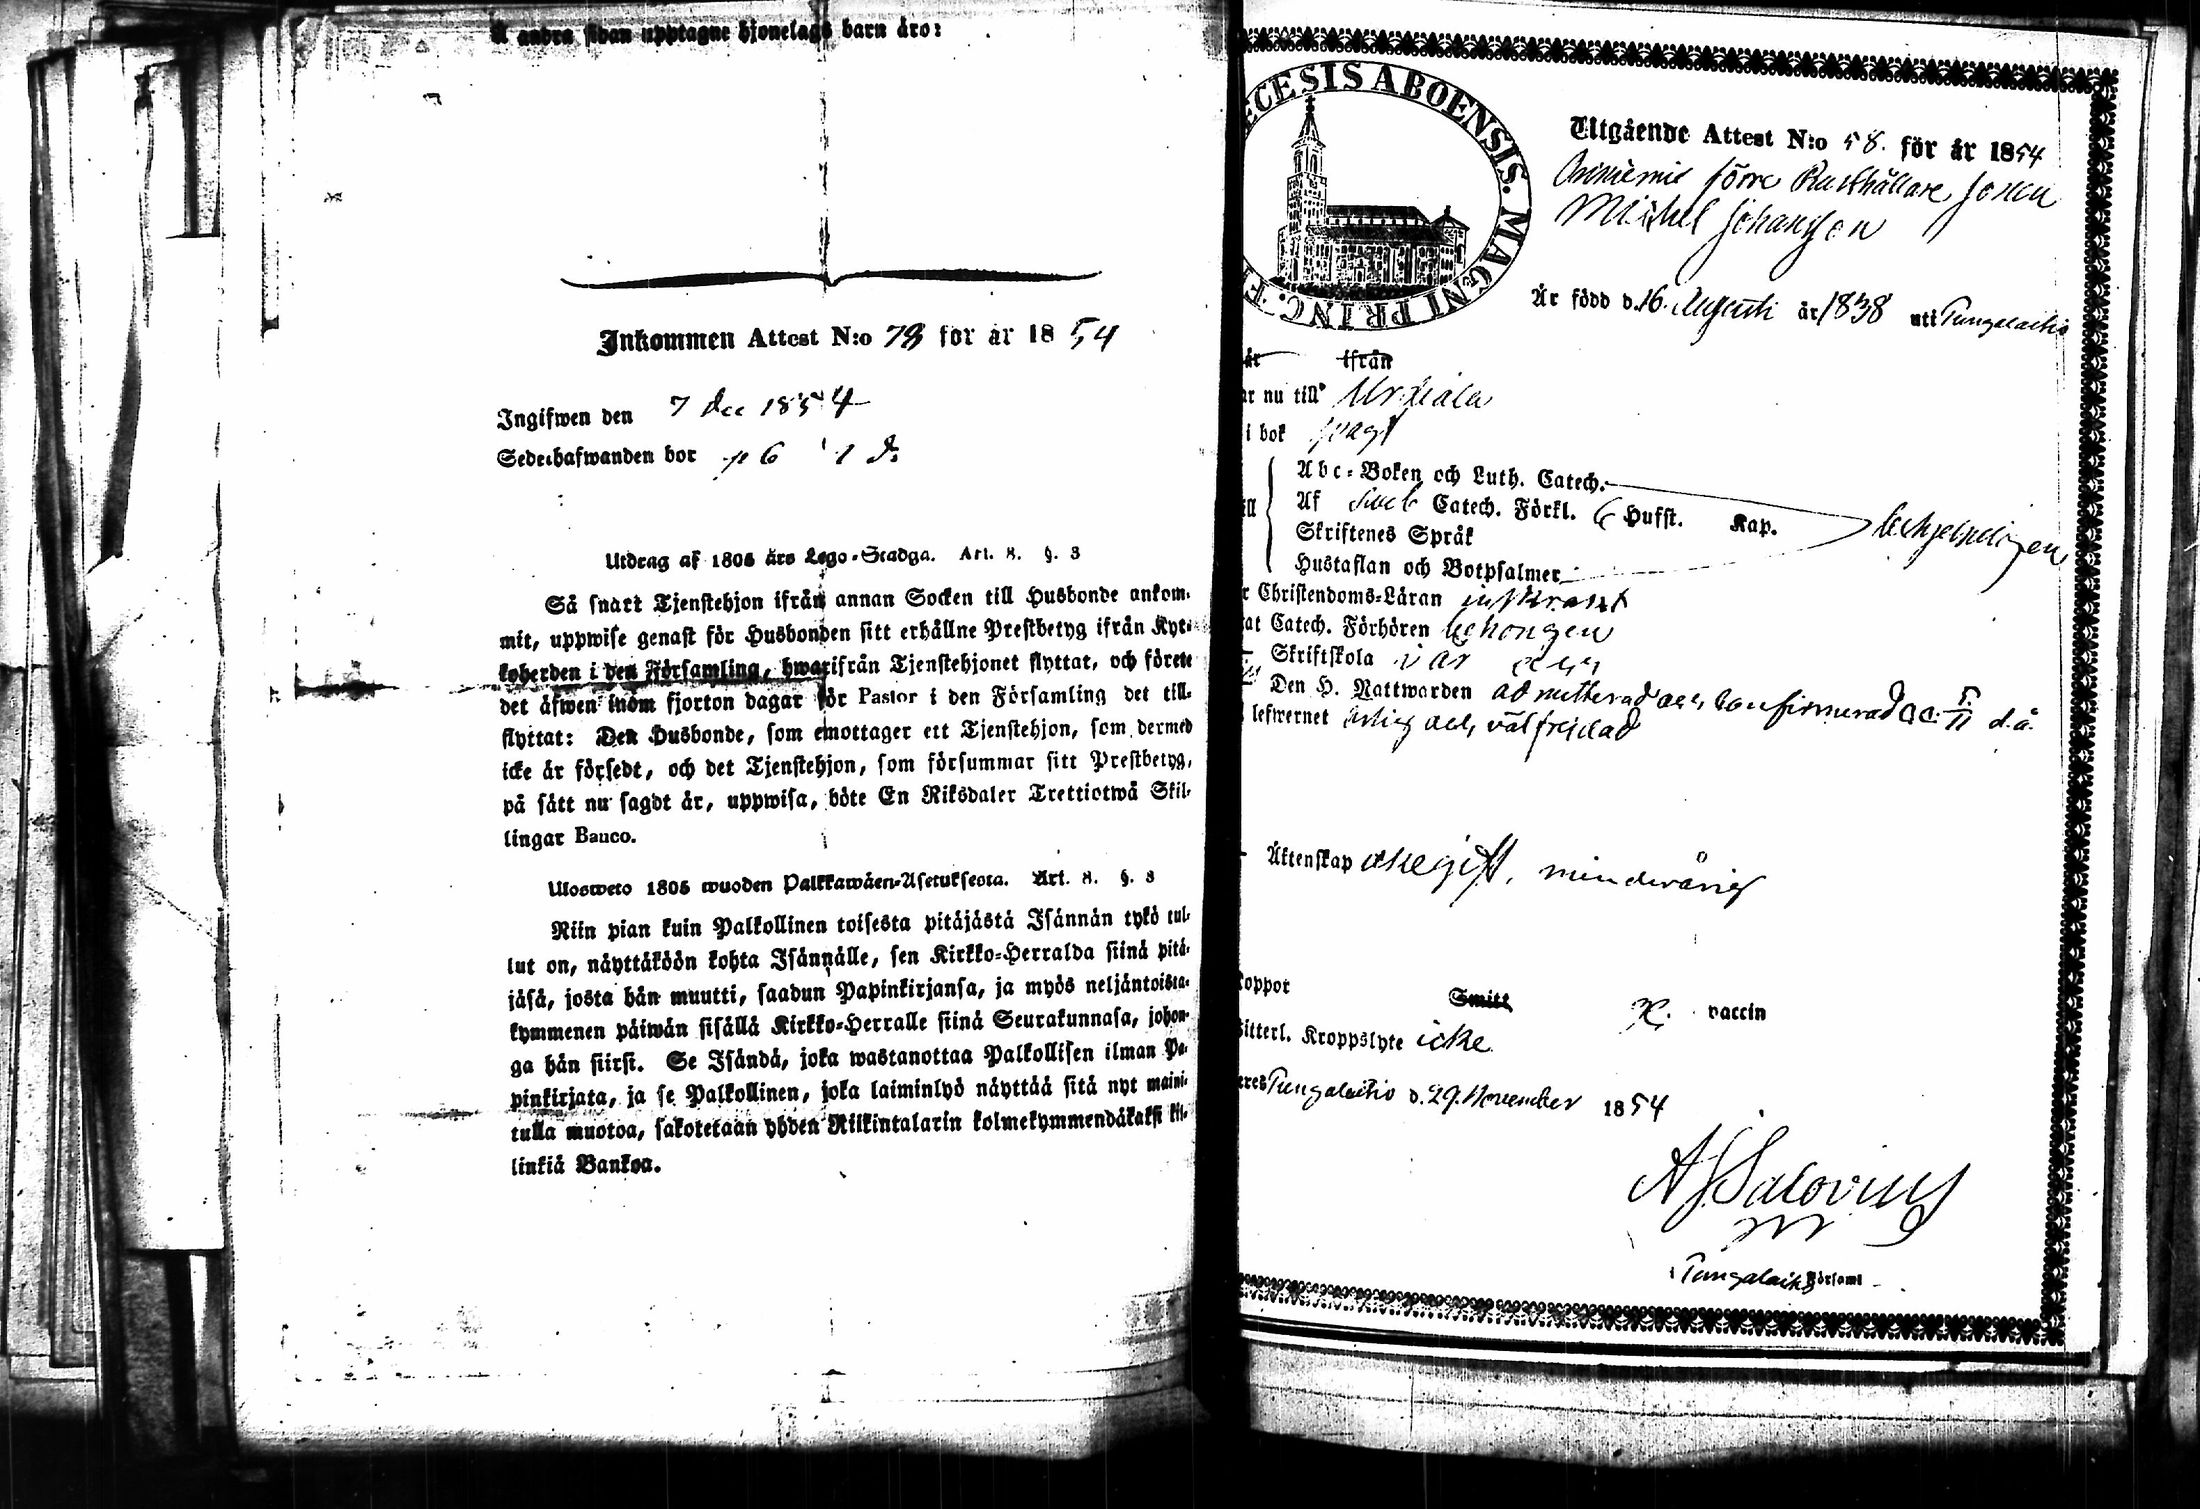 Å andra sidan upptagne hjonelags barn äro:
Inkommen Attest N:o 78 för år 1854
Ingifwen den 7 dec 1854
Sedethafwanden bor p 6
Utdrag af 1805 års Lego-Stadga. Art. 8. §. 3
Så snart Tjenstehjon ifrån annan Socken till Husbonde ankom-
mit, uppwise genast för Husbonden sitt erhållne Prestbetyg ifrån Kyr-
koherden i den Församling, hwarifrån Tjenstehjonet flyttat, och förete
det äfwen inom fjorton dagar för Pastor i den Församling det till-
flyttat: Den Husbonde, som emottager ett Tjenstehjon, som dermed
icke är försedt, och det Tjenstehjon, som försummar sitt Prestbetyg,
på sätt nu sagdt är, uppwisa, böte En Riksdaler Trettiotwå Skil-
lingar Banco.
Ulosweto 1805 wuoden Palkkawäen-Asetuksesta. Art. 8. §. 3
Niin pian kuin Palkollinen toisesta pitäjästä Isännän tykö tul-
lut on, näyttäköön kohta Isännälle, sen Kirkko-Herralda siinä pitä-
jäsä, josta hän muutti, saadun Papinkirjansa, ja myös neljäntoista-
kymmenen päiwän sisällä Kirkko-Herralle siinä Seurakunnasa, johon-
ga hän siirsi. Se Isändä, joka wastanottaa Palkollisen ilman Pa-
pinkirjata, ja se Palkollinen, joka laiminlyö näyttää sitä nyt maini-
tulla muotoa, sakotetaan yhden Riikintalarin kolmekymmendäkaksi kil-
linkiä Bankoa.
ECESIS ABOENSIS. MAGNI PRINC. F
Utgående Attest N:o 58. för år 1854
förre Rusthållare Sonen
Michel Johansson
Är född d. 16. Augusti år 1838 uti Pungalaitio
är ifrån
ar nu till Urdiala
i bok svagt
Abc-Boken och Luth. Catech.
ill Af Sveb Catech. Förkl. 6 Hufst. Kap.
Skriftenes Språk
Hustaflan och Botpsalmer
r Christendoms-Läran inskränkt
at Catech. Förhören
Skriftskola i år
Den H. Nattwarden admitterad och confirmerad d. å.
lefwernet ärlig och välfrejdad
Äktenskap icke gift, minderårig
Koppor Smitt vaccin
Witterl. Kroppslyte icke
Pungalaitio d. 29. November 1854
A J Salovius
i Pungalaitio Församl